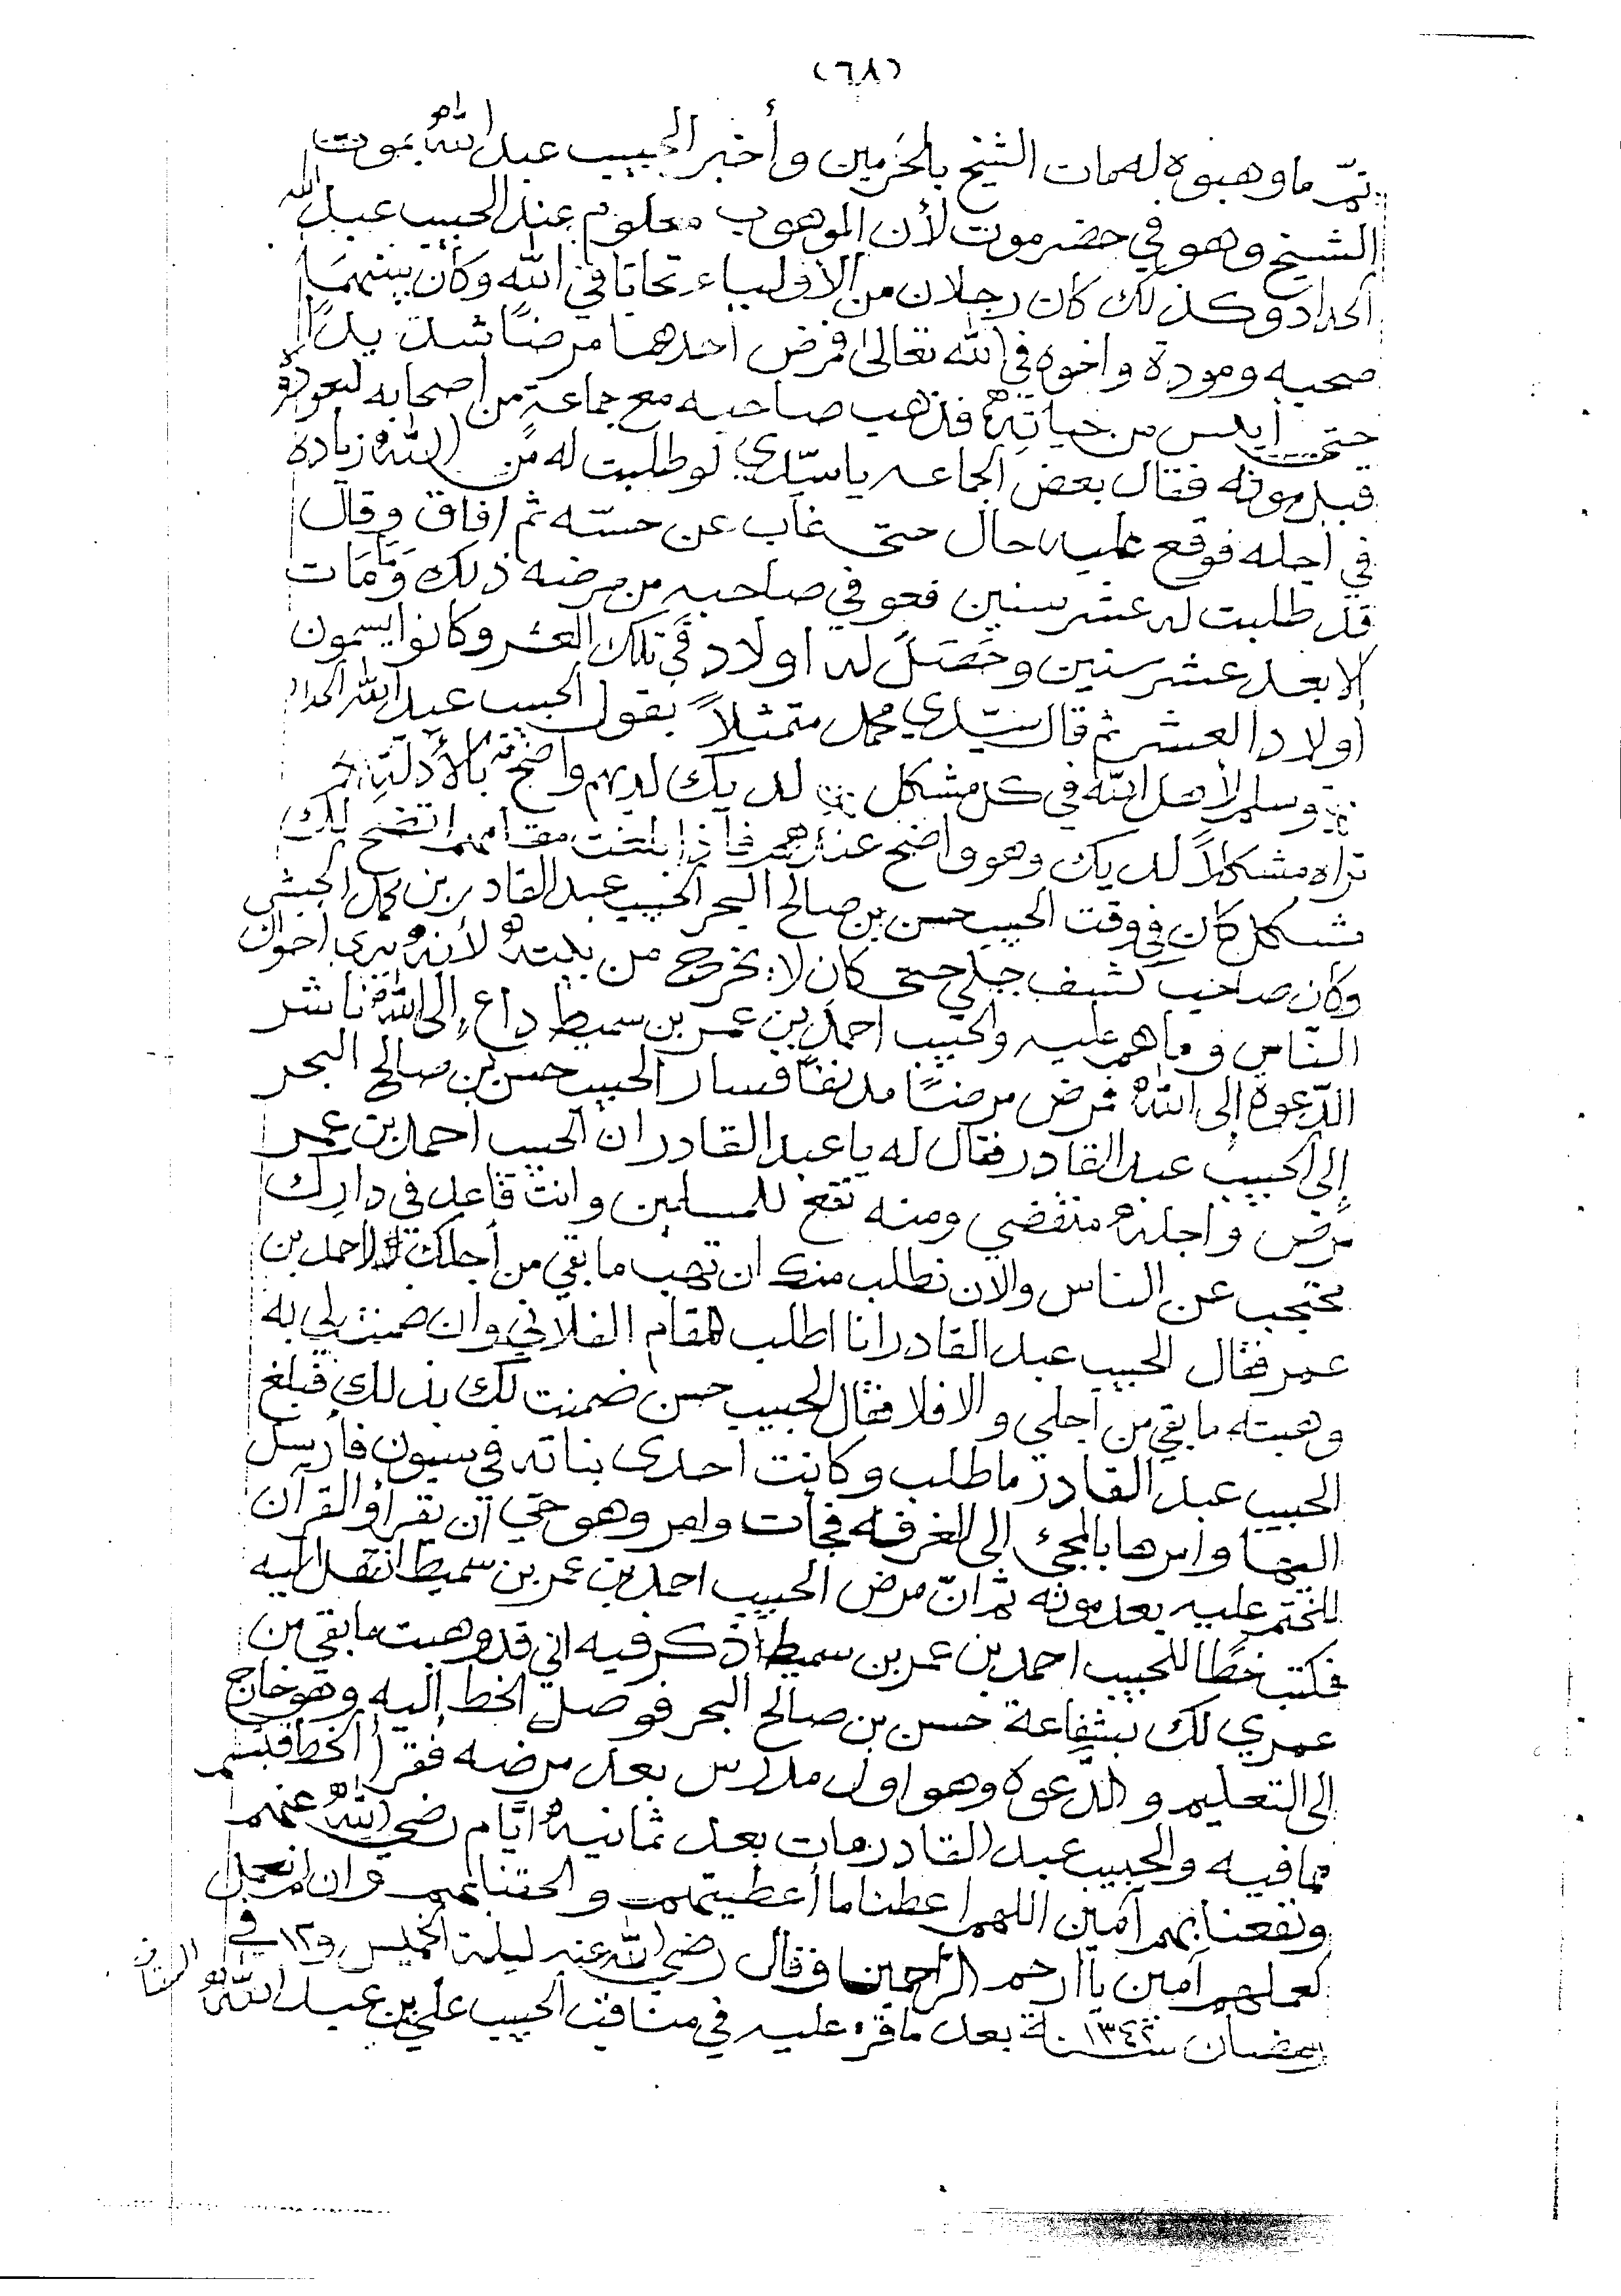 (٦٨)
تمّ ما وهبوه له مات الشيخ بالحرمين وأخبر الحبيب عبد الله بموت
الشيخ وهو في حضرموت لأن الموهوب معلوم عند الحبيب عبد الله
الحداد وكذلك كان رجلان من الأولياء تحابا في الله وكان بينهما
صحبه ومودة واخوه في الله تعالى فمرض احدهما مرضًا شديدًا
حتى أيس من حياته فذهب صاحبه مع جماعة من اصحابه لعوده
قبل موته فقال بعض الجماعه يا سيّدي لو طلبت له من الله زياده
في اجله فوقع عليه حال حتى غاب عن حسّه ثم افاق وقال
قد طلبت له عشر سنين فعوفي صاحبه من مرضه ذلك وما مات
الا بعد عشر سنين وحصل له اولاد في تلك العشر وكانوا يسمون
أولاد العشر ثم قال سيّدي محمد متمثلاً بقول الحبيب عبد الله الحداد
وسلم لأهل الله في كل مشكل لديك لديهم واضح بالأدلة
تراه مشكلاً لديك وهو واضح عندهم فاذا بلغت مقامهم اتضح لك
مشكل كان في وقت الحبيب حسن بن صالح البحر الحبيب عبد القادر بن محمد الحبشي
وكان صاحب كشف جلي حتى كان لا يخرج من بيته لأنه يرى احوال
النّاس وما هم عليه والحبيب احمد بن عمر بن سميط داعٍ إلى الله ناشر
الدّعوة إلى الله فمرض مرضًا مدنفًا فسار الحبيب حسن بن صالح البحر
إلى الحبيب عبد القادر فقال له يا عبد القادر ان الحبيب احمد بن عمر
مرض واجله منقضي ومنه نفع للمسلمين وانت قاعد في دارك
محتجب عن الناس والان نطلب منك ان تهب ما بقي من أجلك لاحمد بن
عمر فقال الحبيب عبد القادر انا اطلب المقام الفلاني وان ضمنت لي به
وهبته ما بقي من أجلي والا فلا فقال الحبيب حسن ضمنت لك بذلك فبلغ
الحبيب عبد القادر ما طلب وكانت احدى بناته في سيون فأرسل
اليها وامرها بالمجئ إلى الغرفه فجات وامر وهو حي أن يقرأو القرآن
للختم عليه بعد موته ثم انّ مرض الحبيب احمد بن عمر بن سميط انتقل اليه
فكتب خطًا للحبيب احمد بن عمر بن سميط ذكر فيه اني قد وهبت ما بقي من
عمري لك بشفاعة حسن بن صالح البحر فوصل الخط إليه وهو خارج
إلى التعليم والدّعوة وهو اول مدرس بعد مرضه فقرأ الخط فتبسم
مما فيه والحبيب عبد القادر مات بعد ثمانية ايّام رضي الله عنهم
ونفعنا بهم آمين اللهم اعطنا ما أعطيتهم والحقنا بهم وان لم نعمل
كعملهم آمين يا ارحم الرّاحمين وقال رضي الله عنه ليلة الخميس و١٢ في
رمضان سنة ١٣٤٢ بعد ما قرء عليه في مناقب الحبيب علي بن عبد الله السقاف